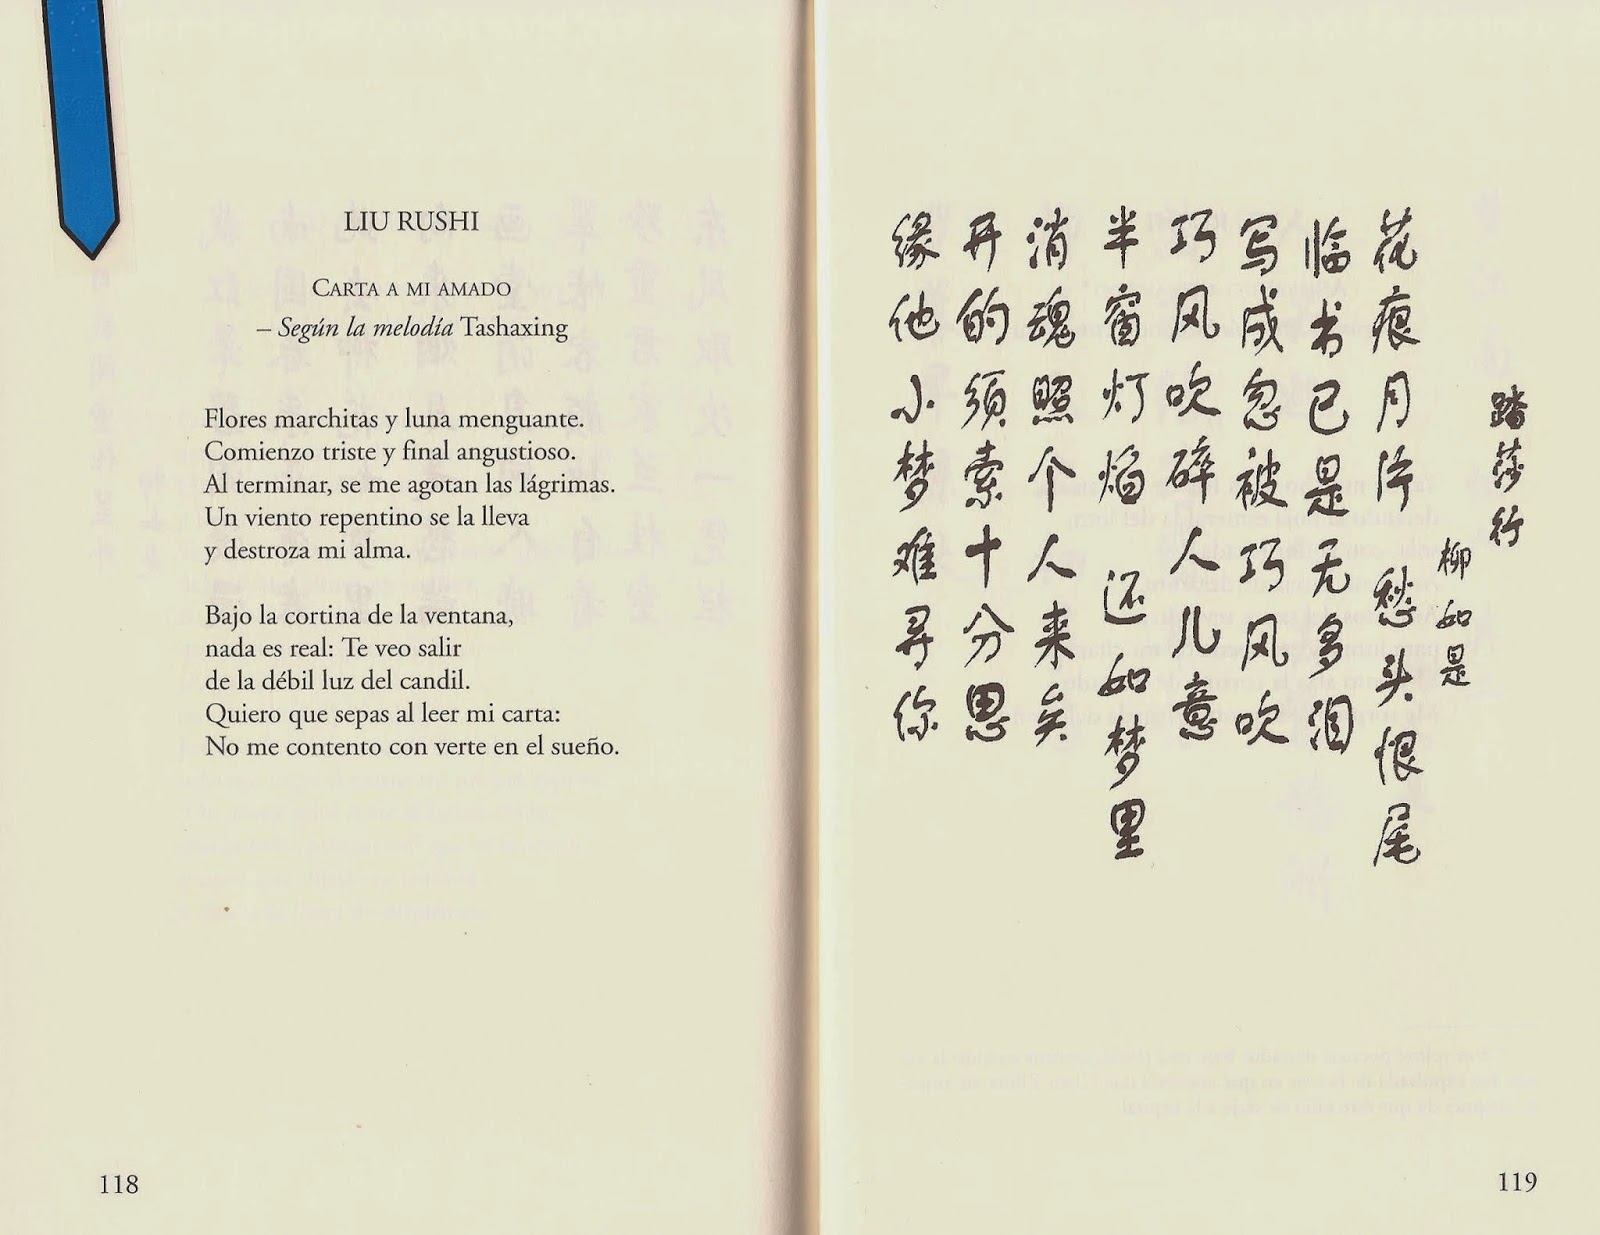 LIU RUSHI
CARTA A MI AMADO
– Según la melodía Tashaxing
Flores marchitas y luna menguante.
Comienzo triste y final angustioso.
Al terminar, se me agotan las lágrimas.
Un viento repentino se la lleva
y destroza mi alma.
Bajo la cortina de la ventana,
nada es real: Te veo salir
de la débil luz del candil.
Quiero que sepas al leer mi carta:
No me contento con verte en el sueño.
118
踏莎行
柳如是
花痕月片 愁头恨尾
临书已是无多泪
写成忽被巧风吹
巧风吹碎人儿意
半窗灯焰 还如梦里
消魂照个人来矣
开的须索十分思
缘他小梦难寻你
119